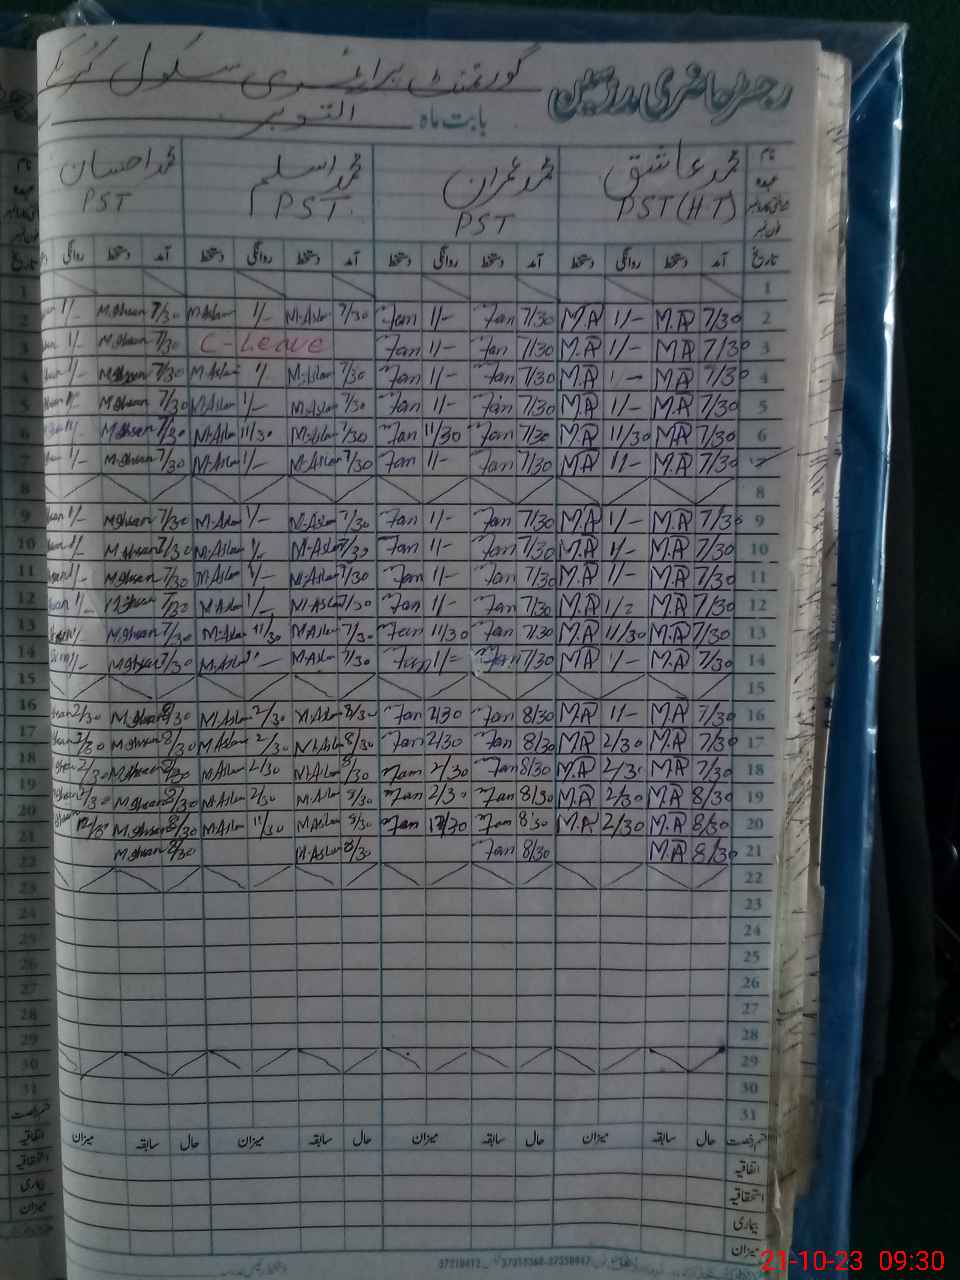 رجسٹر حاضری مدرسین گورنمنٹ پرائمری سکول
بابت ماہ اکتوبر
نام محمد عاشق محمد عمران محمد اسلم محمد احسان
عہدہ PST (H.T) PST PST PST
تاریخ آمد دستخط روانگی دستخط آمد دستخط روانگی دستخط آمد دستخط روانگی دستخط آمد دستخط روانگی
1
2 7/30 M.A 1/- M.A 7/30 Jan 1/- Jan 7/30 M.Aslam 1/- M.Aslam 7/30 M.Ihsan 1/-
3 7/30 M.A 1/- M.A 7/30 Jan 1/- Jan C-Leave 7/30 M.Ihsan 1/-
4 7/30 M.A M.A 7/30 Jan 1/- Jan 7/30 M.Aslam M.Aslam 7/30 M.Ihsan 1/-
5 7/30 M.A 1/- M.A 7/30 Jan 1/- Jan 7/30 M.Aslam 1/- M.Aslam 7/30 M.Ihsan
6 7/30 M.A 11/30 M.A 7/30 Jan 11/30 Jan 7/30 M.Aslam 11/30 M.Aslam 7/30 M.Ihsan
7 7/30 M.A 1/- M.A 7/30 Jan 1/- Jan 7/30 M.Aslam 1/- M.Aslam 7/30 M.Ihsan 1/-
8
9 7/30 M.A 1/- M.A 7/30 Jan 1/- Jan 7/30 M.Aslam 1/- M.Aslam 7/30 M.Ihsan 1/-
10 7/30 M.A 1/- M.A 7/30 Jan 1/- Jan 7/30 M.Aslam M.Aslam 7/30 M.Ihsan
11 7/30 M.A 1/- M.A 7/30 Jan 1/- Jan 7/30 M.Aslam 1/- M.Aslam 7/30 M.Ihsan
12 7/30 M.A M.A 7/30 Jan 1/- Jan 7/30 M.Aslam 1/- M.Aslam 7/30 M.Ihsan 1/-
13 7/30 M.A 11/30 M.A 7/30 Jan 11/30 Jan 7/30 M.Aslam 11/30 M.Aslam 7/30 M.Ihsan
14 7/30 M.A 1/- M.A 7/30 Jan 1/- Jan 7/30 M.Aslam M.Aslam 7/30 M.Ihsan 1/-
15
16 7/30 M.A 1/- M.A 8/30 Jan 2/30 Jan 8/30 M.Aslam 2/30 M.Aslam 8/30 M.Ihsan 2/30
17 7/30 M.A 2/30 M.A 8/30 Jan 2/30 Jan 8/30 M.Aslam 2/30 M.Aslam 8/30 M.Ihsan 2/30
18 7/30 M.A 2/30 M.A 8/30 Jan 2/30 Jan 8/30 M.Aslam 2/30 M.Aslam 8/30 M.Ihsan 2/30
19 8/30 M.A 2/30 M.A 8/30 Jan 2/30 Jan 8/30 M.Aslam 2/30 M.Aslam 8/30 M.Ihsan 2/30
20 8/30 M.A 2/30 M.A 8/30 Jan 12/30 Jan 8/30 M.Aslam 11/30 M.Aslam 8/30 M.Ihsan
21 8/30 M.A 8/30 Jan 8/30 M.Aslam 8/30 M.Ihsan
22
23
24
25
26
27
28
29
30
31
قسم رخصت حال سابقہ میزان حال سابقہ میزان حال سابقہ میزان حال سابقہ میزان
اتفاقیہ
استحقاقیہ
بیماری
میزان
21-10-23 09:30